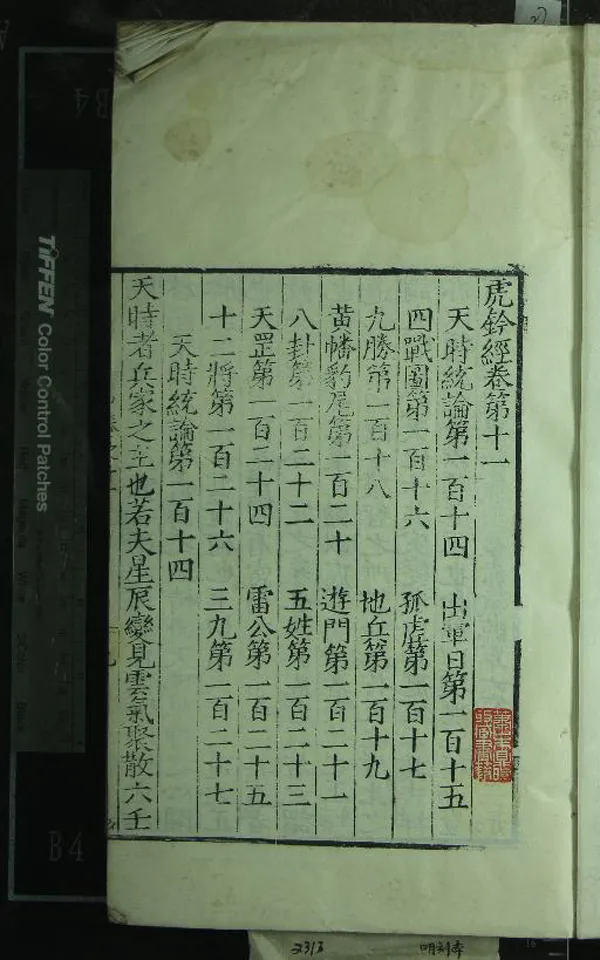 虎鈐經卷第十一
天時統論第一百十四 出軍日第一百十五
四戰圖第一百十六 孤虛第一百十七
九勝第一百十八 地丘第一百十九
黃幡豹尾第一百二十 遊門第一百二十一
八封第一百二十二 五姓第一百二十三
天罡第一百二十四 雷公第一百二十五
十二將第一百二十六 三九第一百二十七
天時統論第一百十四
天時者兵家之主也若夫星辰變見雲氣聚散六壬
TIFFEN Color Control Patches
B4
B4
2313
明刻本